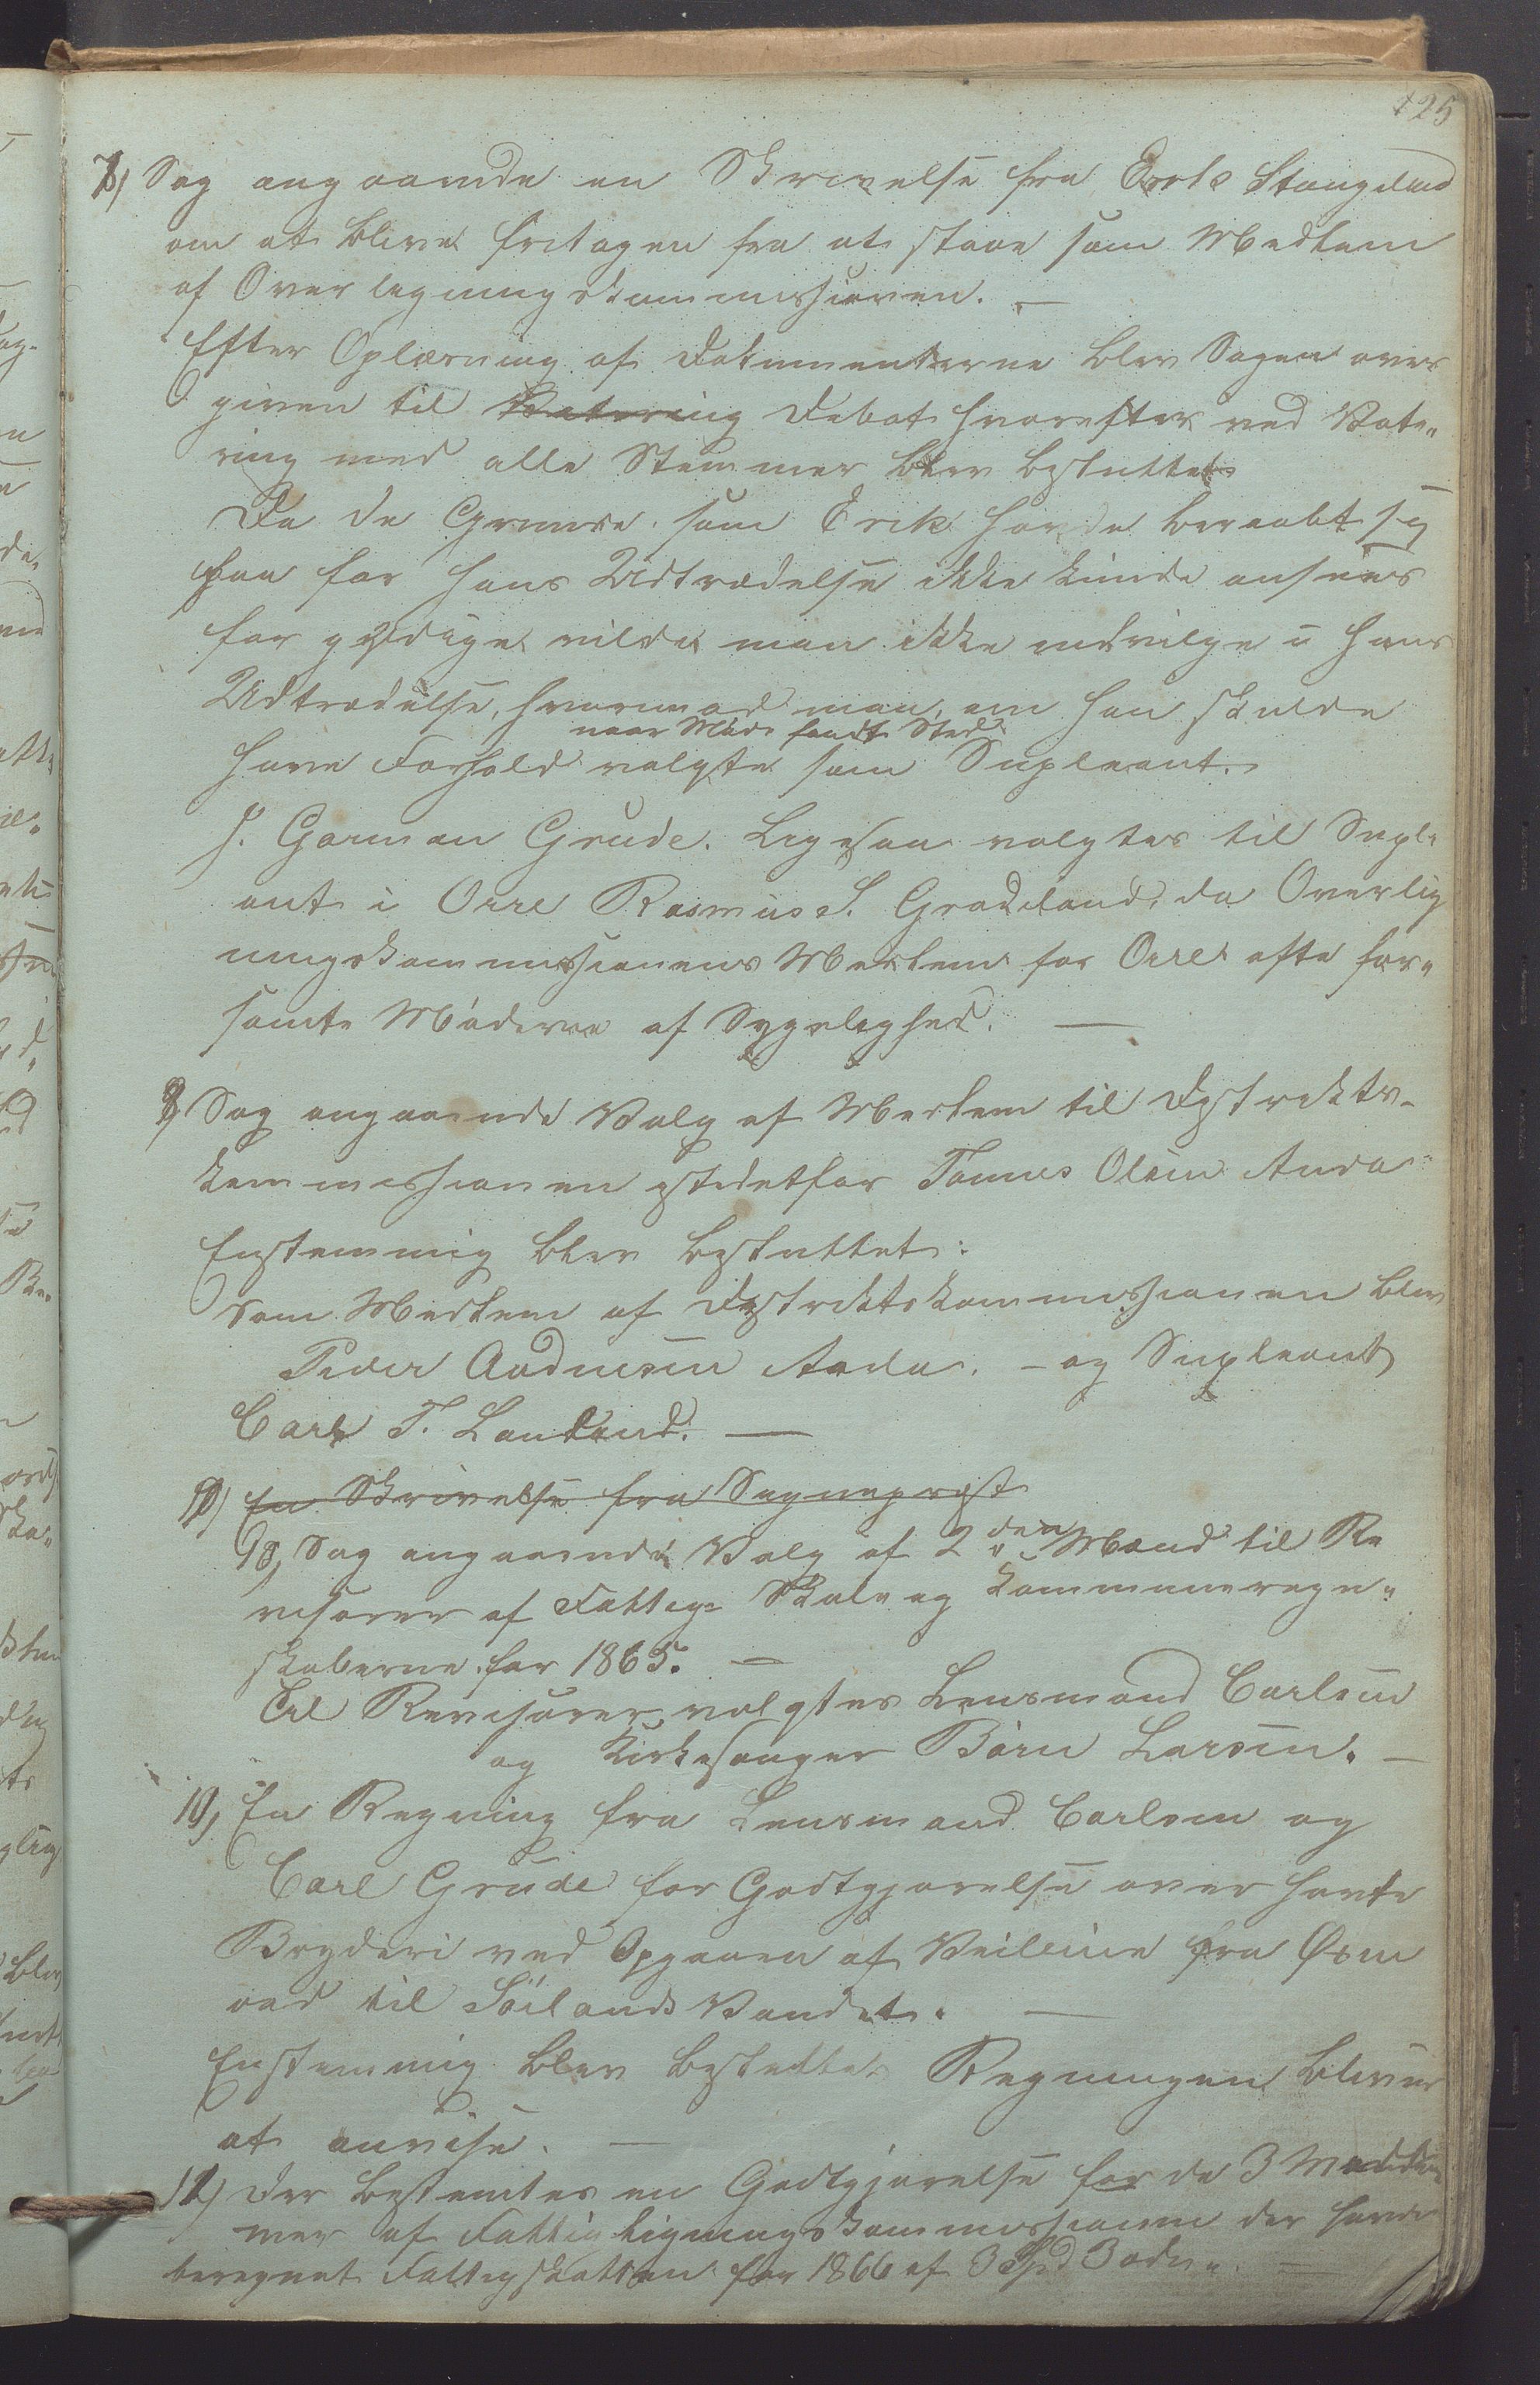 125
7) Sag angaaende en Skrivelse fra Erik Stangeland
om at blive fritagen fra at staae som Medlem
af Overlegningskommissionen. —
Efter Oplæsning af Dokumenterne blev Sagen over
given til Votering Debat hvorefter ved Vote„
ring med alle Stemmer blev besluttet
Da de Grunde som Erik havde beraabt sig
paa for hans Udtrædelse ikke kunde ansees
for gyldige vilde man ikke indvilge i hans
Udtrædelse, hvorimod man, om han skulde
naar Møde fandt Sted
have Forfald valgte som Supleant.
J. Garman Grude. Ligesaa valgtes til Suple
ant i Orre Rasmus S. Grødeland, da Overlig
ningskommissionens Medlem for Orre ofte for„
sømte Møderne af Sygelighed. —
8, Sag angaaende Valg af Medlem til Distrikts-
kommissionen istedetfor Tønnes Olsen Anda
Enstemmig blev besluttet:
Som Medlem af Distriktskommissionen blev
Peder Aadnesen Anda. – og Supleant
Carl T. Laland. —
10) En Skrivelse fra Sogneprest
10, Sag angaaende Valg af 2den Mænd til Re
visorer af Fattig- Skole og Kommuneregn„
skaberne for 1865. —
Til Revisorer valgtes Lensmand Carlsen
og Kirkesanger Børn Larsen. —
10, En Regning fra Lensmand Carlsen og
Carl Grude for Godtgjørelse over havte
Bryderi ved Opgaaen af Veilinie fra Øxne
vad til Söilands Vandet. —
Enstemmig blev besluttet Regningen bliver
at anvise. —
11) Der bestemtes en Godtgjørelse for de 3 Medlem
mer af Fattigligningskommissionen der havde
beregnet Fattigskatten for 1866 af 3 Spd 3 ort. —